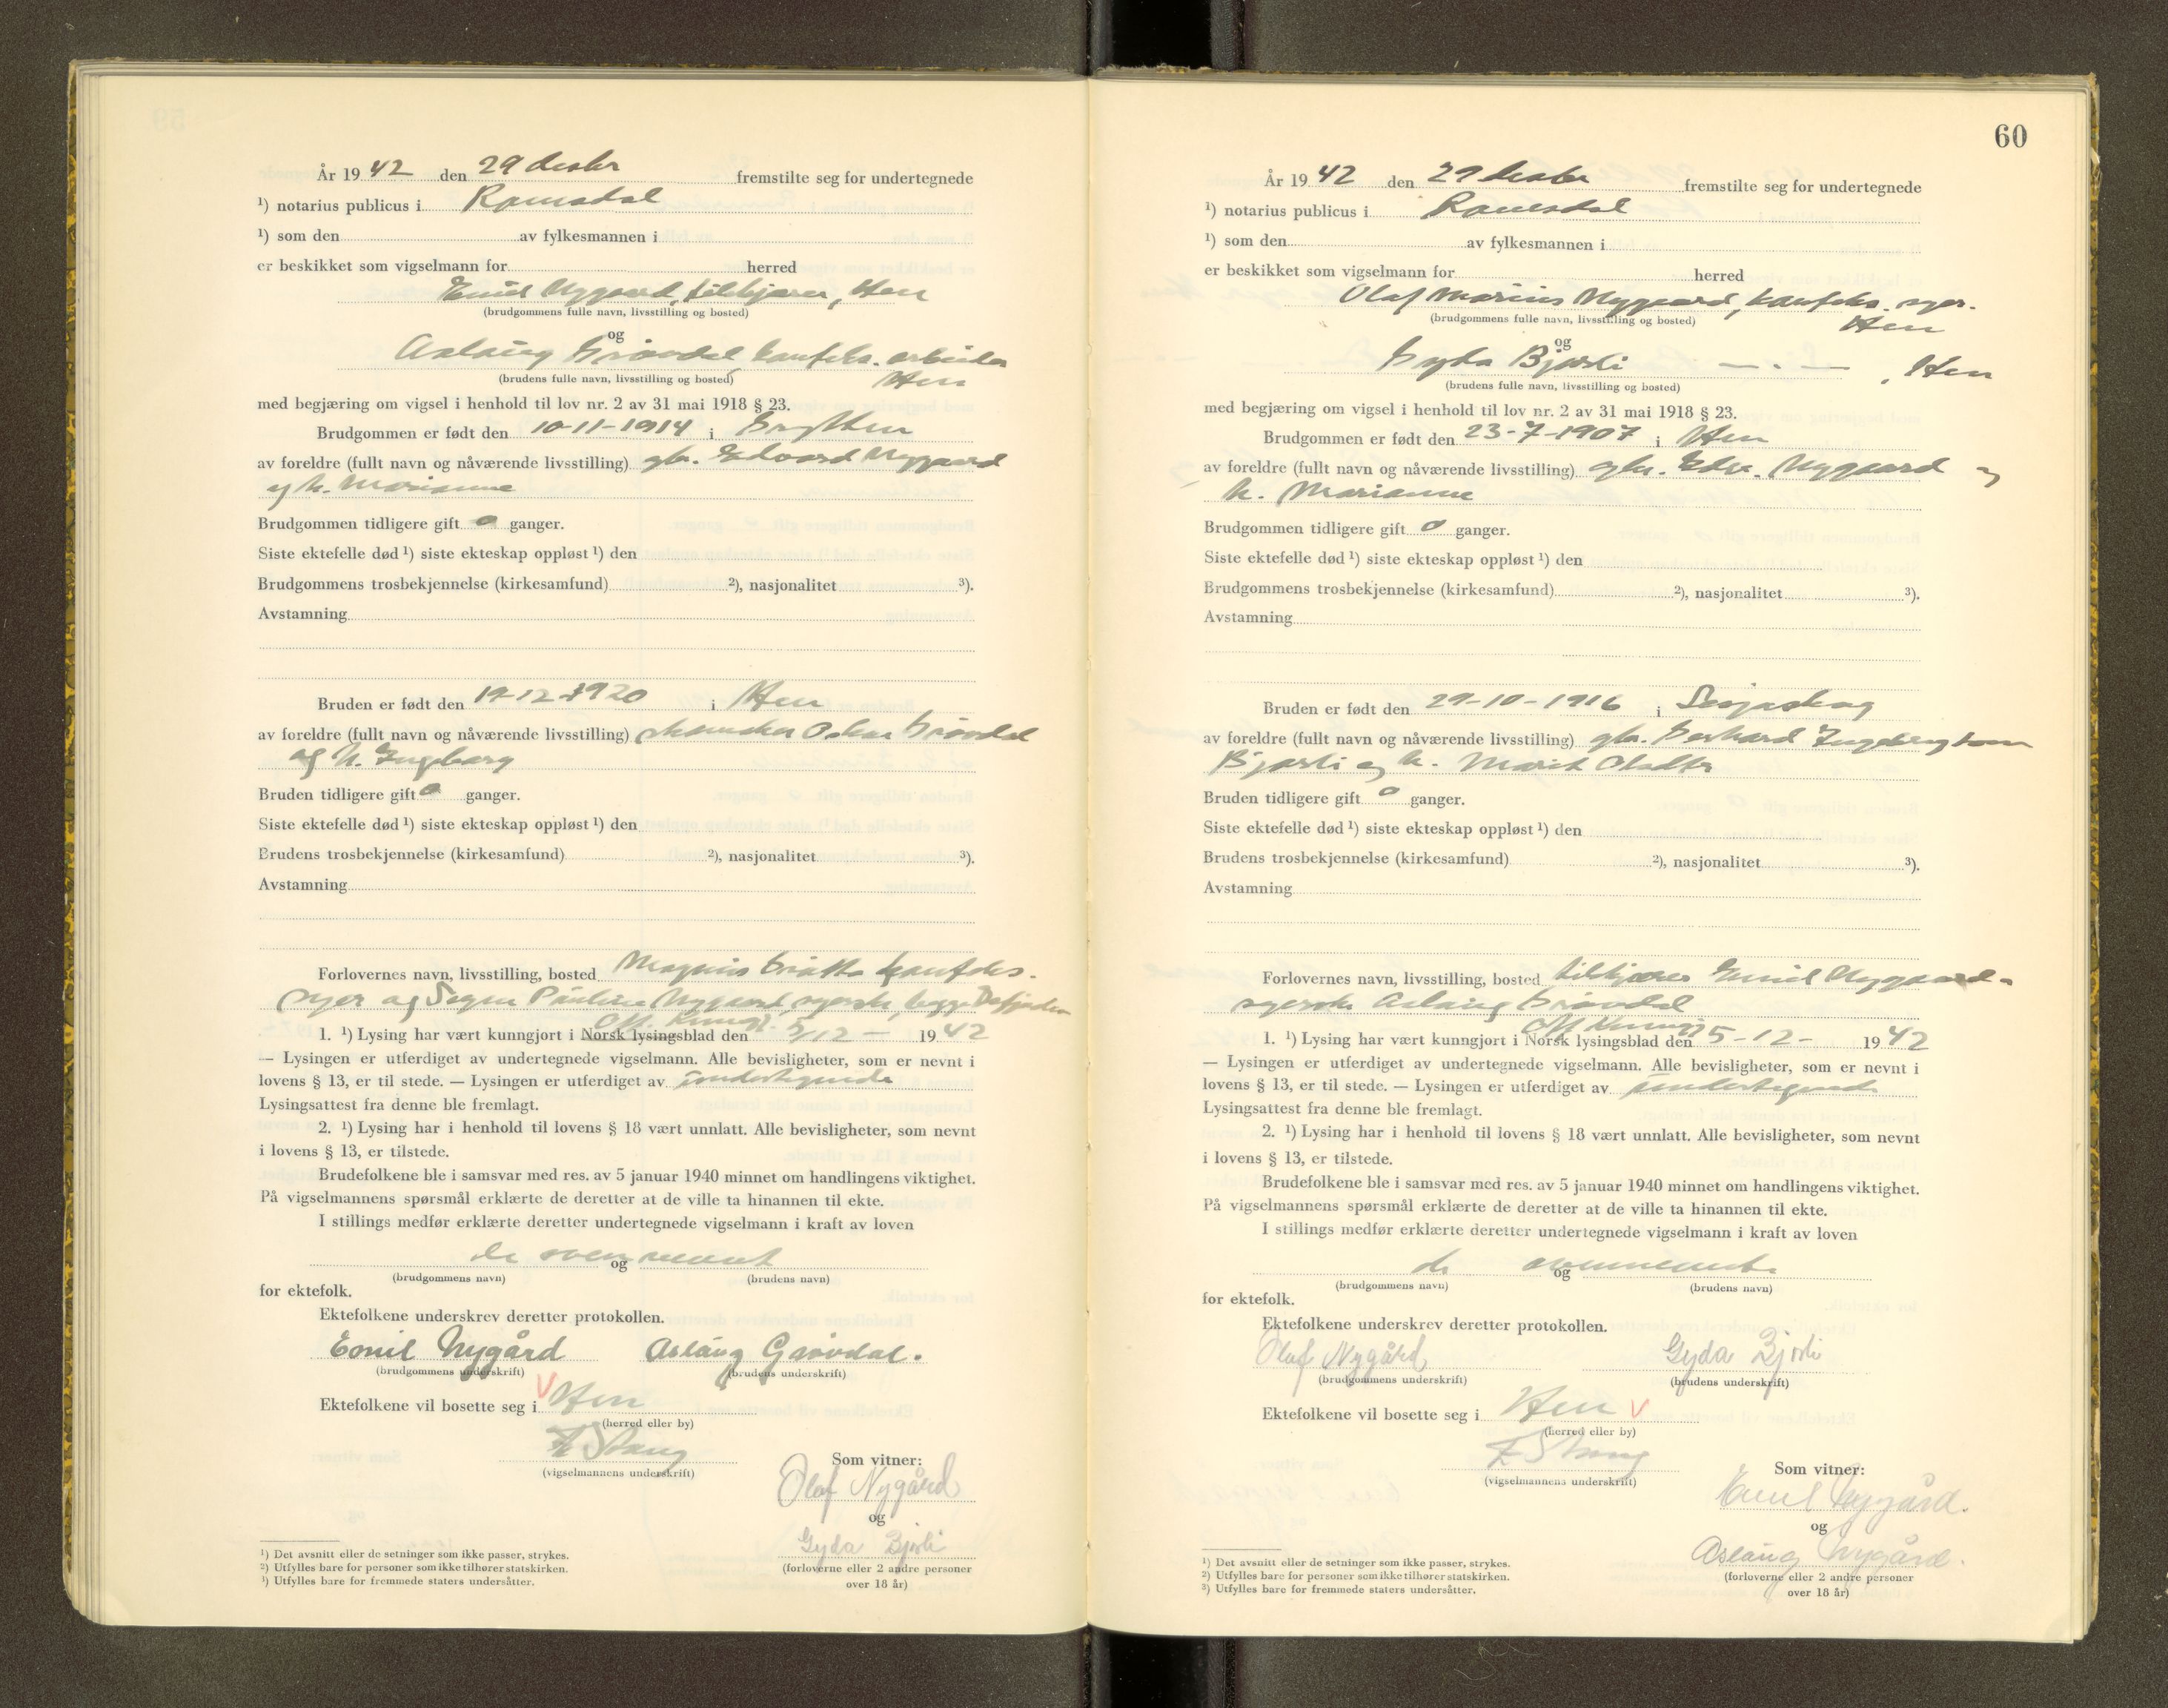 År 1942 den 29 desbr fremstilte seg for undertegnede
¹) notarius publicus i Romsdal
¹) som den av fylkesmannen i
er beskikket som vigselmann for herred
Emil Nygaard, tilskjærer, Hen
(brudgommens fulle navn, livsstilling og bosted)
og
Aslaug Grøvdal, konfeks. arbeider
Hen
(brudens fulle navn, livsstilling og bosted)
med begjæring om vigsel i henhold til lov nr. 2 av 31 mai 1918 § 23.
Brudgommen er født den 10-11-1914 i Grytten
av foreldre (fullt navn og nåværende livsstilling) gbr. Edvard Nygaard
og h. Marianne
Brudgommen tidligere gift 0 ganger.
Siste ektefelle død ¹) siste ekteskap oppløst ¹) den
Brudgommens trosbekjennelse (kirkesamfund) ²), nasjonalitet ³).
Avstamning
Bruden er født den 19-12-1920 i Hen
av foreldre (fullt navn og nåværende livsstilling) Oskar Grøvdal
og h. Ingeborg
Bruden tidligere gift 0 ganger.
Siste ektefelle død ¹) siste ekteskap oppløst ¹) den
Brudens trosbekjennelse (kirkesamfund) ²), nasjonalitet ³).
Avstamning
Forlovernes navn, livsstilling, bosted Magnus konfeks.
syer og Pauline Nygaard, syerske, begge
Off. Kunngj.
1. ¹) Lysing har vært kunngjort i Norsk lysingsblad den 5/12 - 1942
— Lysingen er utferdiget av undertegnede vigselmann. Alle bevisligheter, som er nevnt i
lovens § 13, er til stede. — Lysingen er utferdiget av undertegnede
Lysingsattest fra denne ble fremlagt.
2. ¹) Lysing har i henhold til lovens § 18 vært unnlatt. Alle bevisligheter, som nevnt
i lovens § 13, er tilstede.
Brudefolkene ble i samsvar med res. av 5 januar 1940 minnet om handlingens viktighet.
På vigselmannens spørsmål erklærte de deretter at de ville ta hinannen til ekte.
I stillings medfør erklærte deretter undertegnede vigselmann i kraft av loven
de ovennevnt
og
(brudgommens navn) (brudens navn)
for ektefolk.
Ektefolkene underskrev deretter protokollen.
Emil Nygård Aslaug Grøvdal.
(brudgommens underskrift) (brudens underskrift)
Ektefolkene vil bosette seg i Hen
(herred eller by)
Stang
(vigselmannens underskrift)
Som vitner:
Olaf Nygård
og
Gyda Bjorli
(forloverne eller 2 andre personer
over 18 år)
¹) Det avsnitt eller de setninger som ikke passer, strykes.
²) Utfylles bare for personer som ikke tilhører statskirken.
³) Utfylles bare for fremmede staters undersåtter.
60
År 1942 den 29 desbr fremstilte seg for undertegnede
¹) notarius publicus i Romsdal
¹) som den av fylkesmannen i
er beskikket som vigselmann for herred
Olaf Marius Nygaard, konfeks. syer.
Hen
(brudgommens fulle navn, livsstilling og bosted)
og
Gyda Bjorli — " — , Hen
(brudens fulle navn, livsstilling og bosted)
med begjæring om vigsel i henhold til lov nr. 2 av 31 mai 1918 § 23.
Brudgommen er født den 23-7-1907 i Hen
av foreldre (fullt navn og nåværende livsstilling) gbr. Edv. Nygaard og
h. Marianne
Brudgommen tidligere gift 0 ganger.
Siste ektefelle død ¹) siste ekteskap oppløst ¹) den
Brudgommens trosbekjennelse (kirkesamfund) ²), nasjonalitet ³).
Avstamning
Bruden er født den 29-10-1916 i Lesjaskog
av foreldre (fullt navn og nåværende livsstilling) gbr. Gerhard Ingebrigtsen
Bjorli og h. Marit Olsdtr
Bruden tidligere gift 0 ganger.
Siste ektefelle død ¹) siste ekteskap oppløst ¹) den
Brudens trosbekjennelse (kirkesamfund) ²), nasjonalitet ³).
Avstamning
Forlovernes navn, livsstilling, bosted tilskjærer Emil Nygaard
syerske Aslaug Grøvdal
Off Kunngj
1. ¹) Lysing har vært kunngjort i Norsk lysingsblad den 5-12- 1942
— Lysingen er utferdiget av undertegnede vigselmann. Alle bevisligheter, som er nevnt i
lovens § 13, er til stede. — Lysingen er utferdiget av undertegnede
Lysingsattest fra denne ble fremlagt.
2. ¹) Lysing har i henhold til lovens § 18 vært unnlatt. Alle bevisligheter, som nevnt
i lovens § 13, er tilstede.
Brudefolkene ble i samsvar med res. av 5 januar 1940 minnet om handlingens viktighet.
På vigselmannens spørsmål erklærte de deretter at de ville ta hinannen til ekte.
I stillings medfør erklærte deretter undertegnede vigselmann i kraft av loven
de ovennevnte
og
(brudgommens navn) (brudens navn)
for ektefolk.
Ektefolkene underskrev deretter protokollen.
Olaf Nygård Gyda Bjorli
(brudgommens underskrift) (brudens underskrift)
Ektefolkene vil bosette seg i Hen
(herred eller by)
Stang
(vigselmannens underskrift)
Som vitner:
Emil Nygård.
og
Aslaug Nygård.
(forloverne eller 2 andre personer
over 18 år)
¹) Det avsnitt eller de setninger som ikke passer, strykes.
²) Utfylles bare for personer som ikke tilhører statskirken.
³) Utfylles bare for fremmede staters undersåtter.